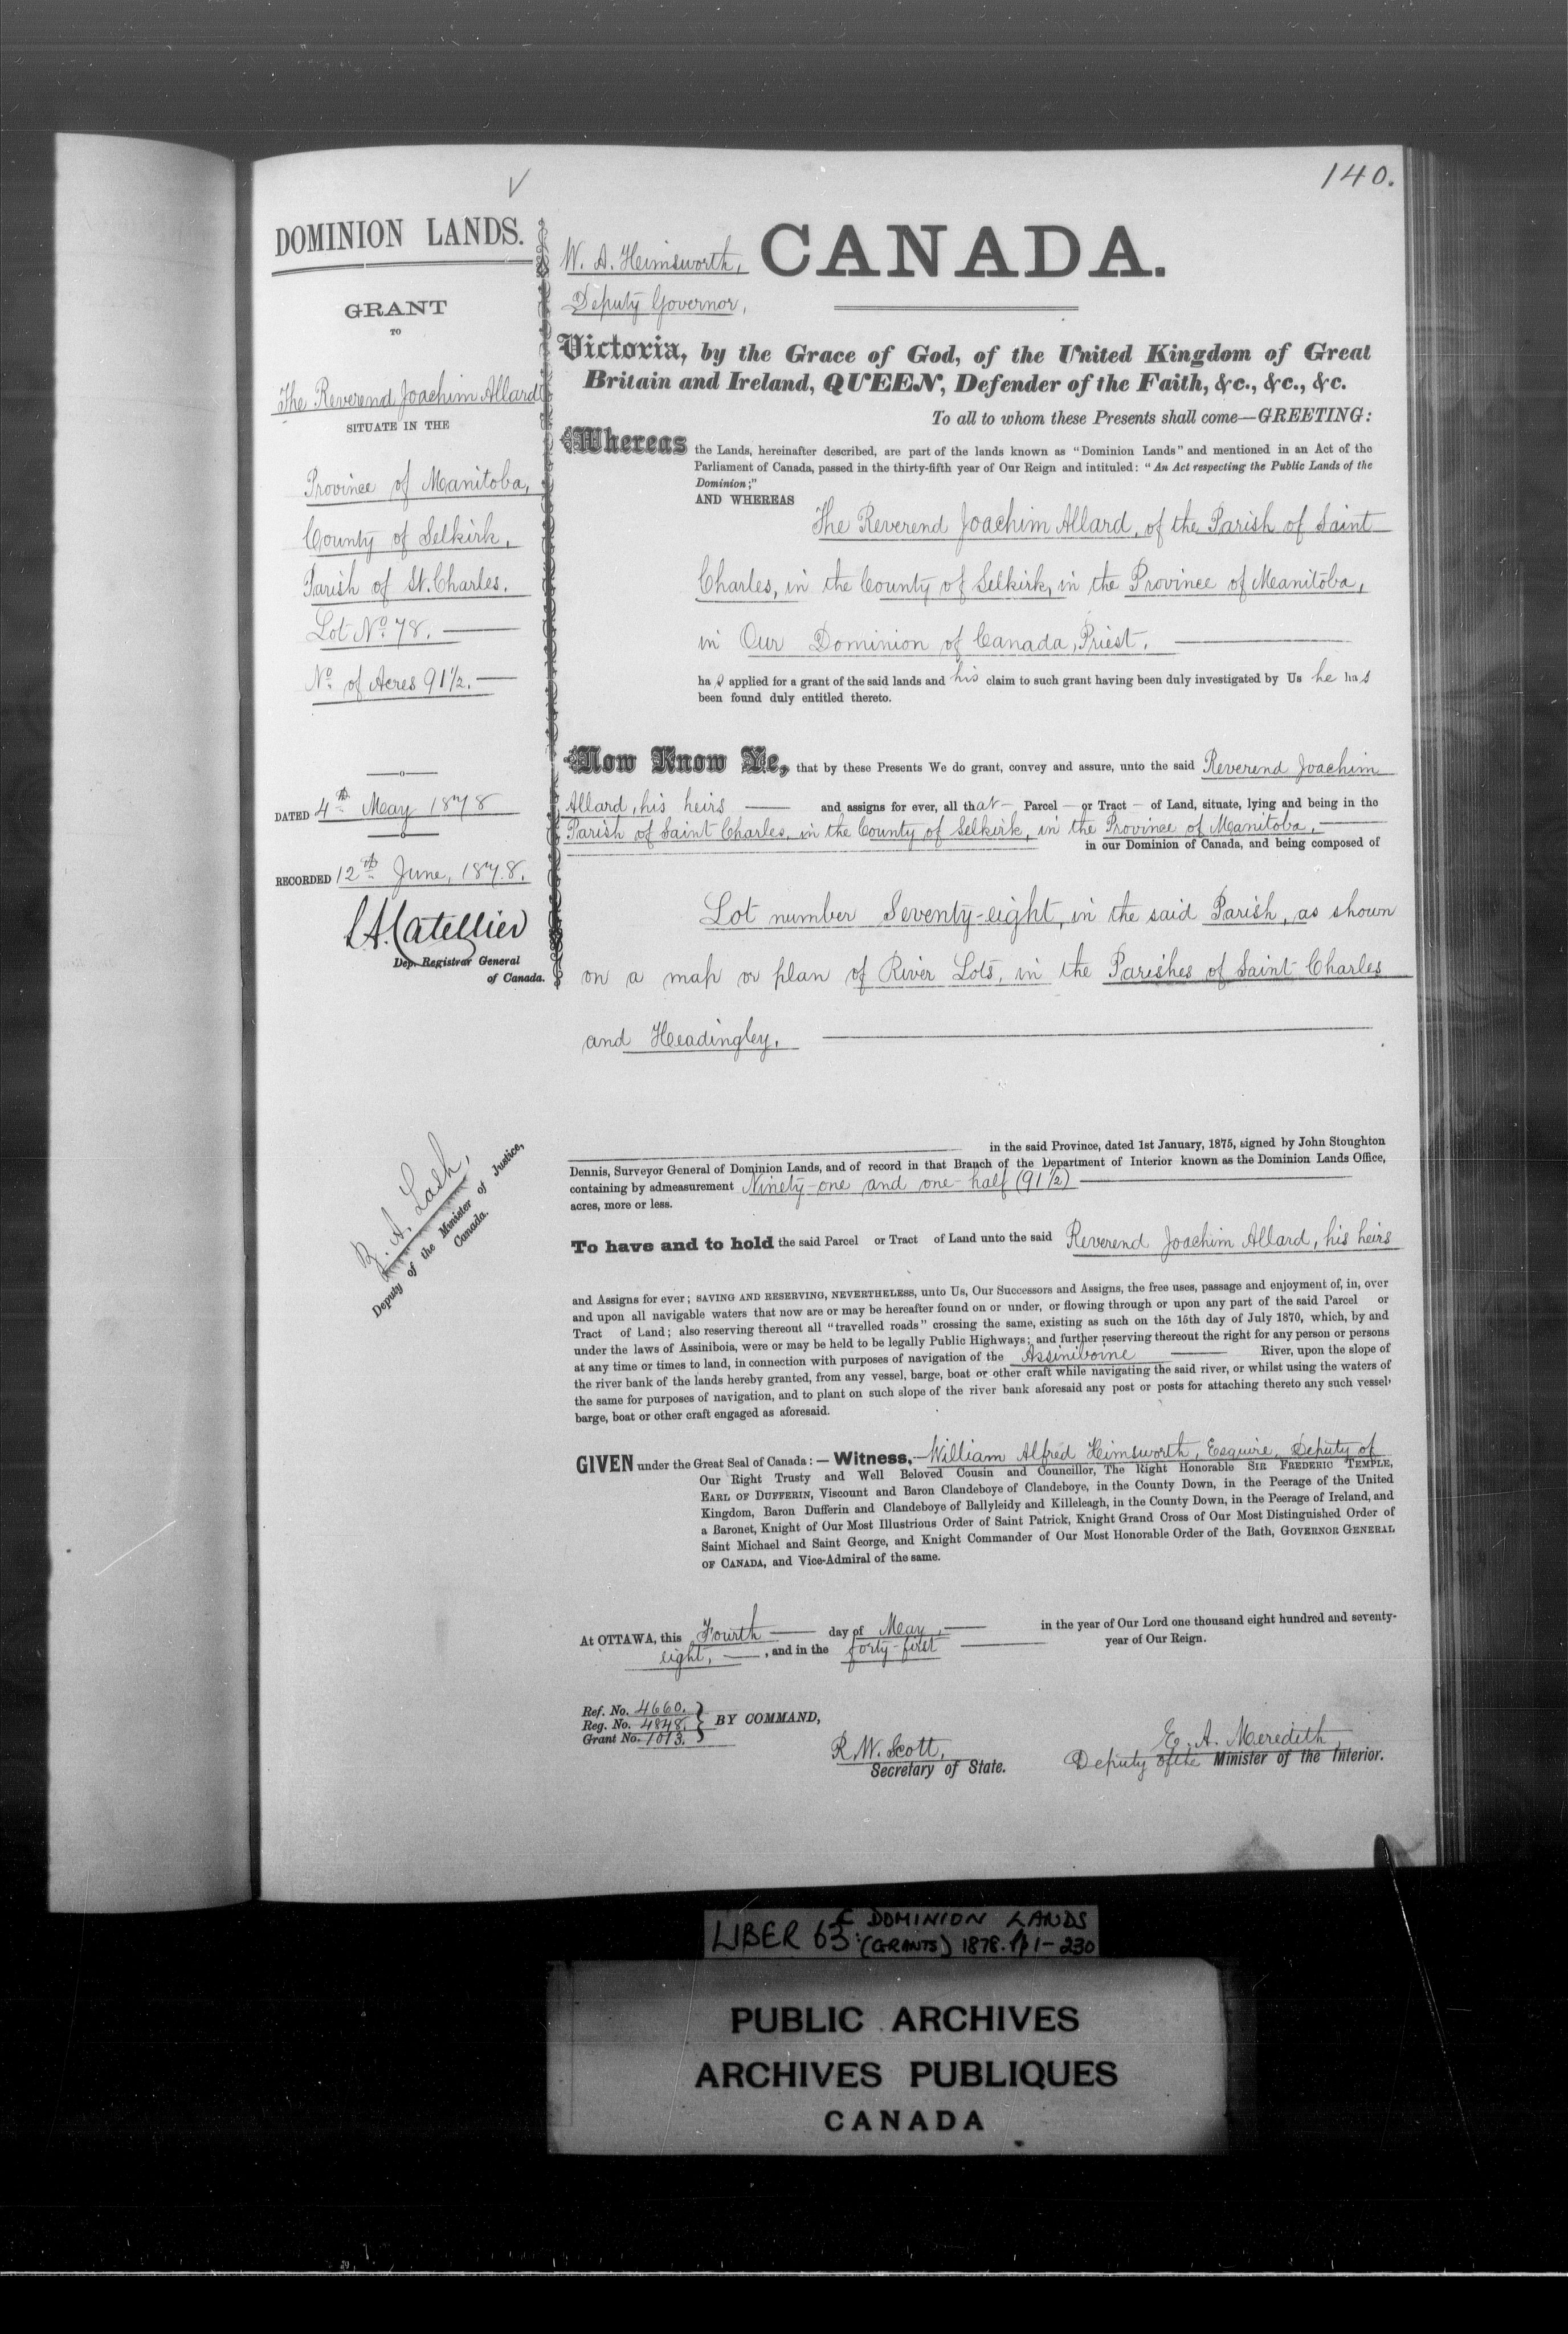 140.
DOMINION LANDS.
GRANT
TO
The Reverend Joachim Allard
SITUATE IN THE
Province of Manitoba,
County of Selkirk,
Parish of St. Charles.
Lot No. 78.
No. of Acres 91 1/2.
DATED 4th May 1878
RECORDED 12th June, 1878.
L.A. Catellier
Dep. Registrar General
of Canada.
Z. A. Lash,
Deputy of the Minister of Justice,
Canada.
W. A. Himsworth,
Deputy Governor,
CANADA.
Victoria, by the Grace of God, of the United Kingdom of Great
Britain and Ireland, QUEEN, Defender of the Faith, &c., &c., &c.
To all to whom these Presents shall come—GREETING:
Whereas the Lands, hereinafter described, are part of the lands known as "Dominion Lands" and mentioned in an Act of the
Parliament of Canada, passed in the thirty-fifth year of Our Reign and intituled: "An Act respecting the Public Lands of the
Dominion;"
AND WHEREAS
The Reverend Joachim Allard, of the Parish of Saint
Charles, in the County of Selkirk, in the Province of Manitoba,
in Our Dominion of Canada, Priest.
has applied for a grant of the said lands and his claim to such grant having been duly investigated by Us he has
been found duly entitled thereto.
Now Know Ye, that by these Presents We do grant, convey and assure, unto the said Reverend Joachim
Allard, his heirs — and assigns for ever, all that — Parcel — or Tract — of Land, situate, lying and being in the
Parish of Saint Charles, in the County of Selkirk, in the Province of Manitoba,
in our Dominion of Canada, and being composed of
Lot number Seventy-eight, in the said Parish, as shown
on a map or plan of River Lots, in the Parishes of Saint Charles
and Headingley.
in the said Province, dated 1st January, 1875, signed by John Stoughton
Dennis, Surveyor General of Dominion Lands, and of record in that Branch of the Department of Interior known as the Dominion Lands Office,
containing by admeasurement Ninety-one and one-half (91 1/2)
acres, more or less.
To have and to hold the said Parcel or Tract of Land unto the said Reverend Joachim Allard, his heirs
and Assigns for ever; SAVING AND RESERVING, NEVERTHELESS, unto Us, Our Successors and Assigns, the free uses, passage and enjoyment of, in, over
and upon all navigable waters that now are or may be hereafter found on or under, or flowing through or upon any part of the said Parcel or
Tract of Land; also reserving thereout all "travelled roads" crossing the same, existing as such on the 15th day of July 1870, which, by and
under the laws of Assiniboia, were or may be held to be legally Public Highways; and further reserving thereout the right for any person or persons
at any time or times to land, in connection with purposes of navigation of the Assiniboine — River, upon the slope of
the river bank of the lands hereby granted, from any vessel, barge, boat or other craft while navigating the said river, or whilst using the waters of
the same for purposes of navigation, and to plant on such slope of the river bank aforesaid any post or posts for attaching thereto any such vessel,
barge, boat or other craft engaged as aforesaid.
GIVEN under the Great Seal of Canada: — Witness, — William Alfred Himsworth, Esquire, Deputy of
Our Right Trusty and Well Beloved Cousin and Councillor, The Right Honorable SIR FREDERIC TEMPLE,
EARL OF DUFFERIN, Viscount and Baron Clandeboye of Clandeboye, in the County Down, in the Peerage of the United
Kingdom, Baron Dufferin and Clandeboye of Ballyleidy and Killeleagh, in the County Down, in the Peerage of Ireland, and
a Baronet, Knight of Our Most Illustrious Order of Saint Patrick, Knight Grand Cross of Our Most Distinguished Order of
Saint Michael and Saint George, and Knight Commander of Our Most Honorable Order of the Bath, GOVERNOR GENERAL
OF CANADA, and Vice-Admiral of the same.
At OTTAWA, this Fourth — day of May, — in the year of Our Lord one thousand eight hundred and seventy-
eight, — , and in the forty-first — year of Our Reign.
Ref. No. 4660.
Reg. No. 4848.
Grant No. 1013.
BY COMMAND,
R. W. Scott,
Secretary of State.
E. A. Meredith,
Deputy of the Minister of the Interior.
LIBER 63: C DOMINION LANDS
(GRANTS) 1878. pp 1-230
PUBLIC ARCHIVES
ARCHIVES PUBLIQUES
CANADA